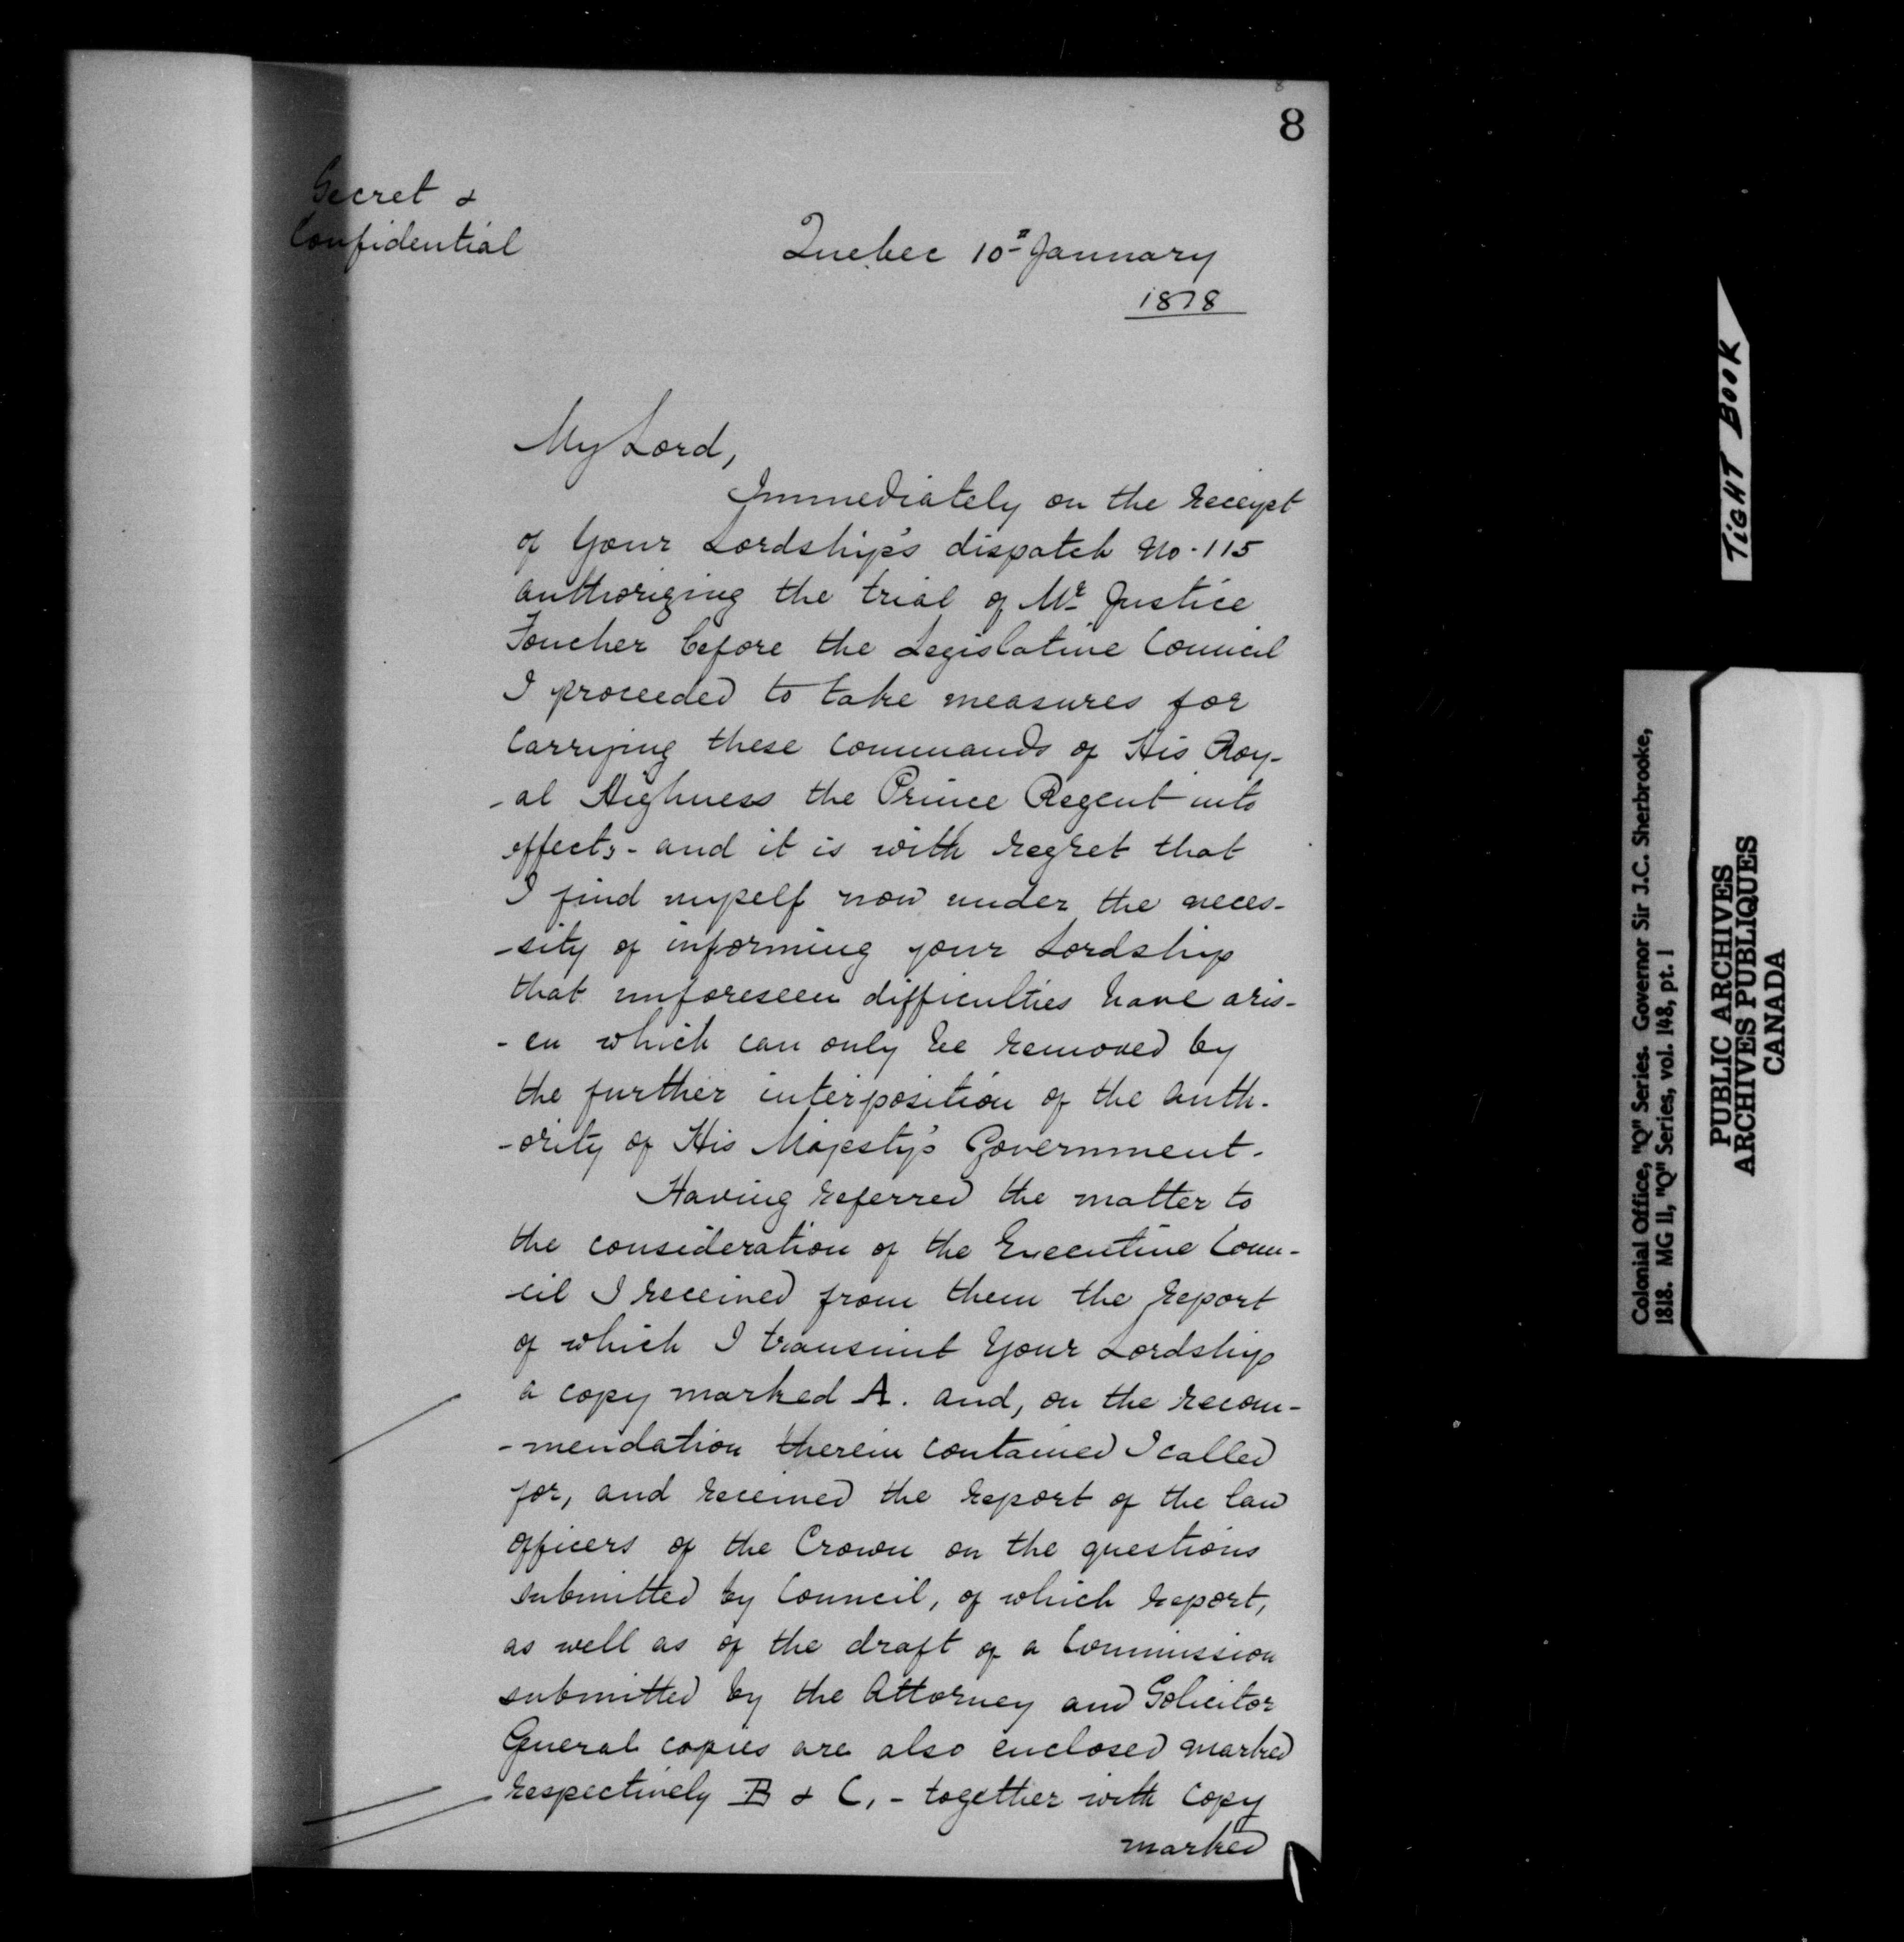 8
Secret &
Confidential
Quebec 10th January
1818
My Lord,
Immediately on the receipt
of Your Lordship's dispatch No. 115
authorizing the trial of Mr Justice
Foucher before the Legislative Council
I proceeded to take measures for
carrying these commands of His Roy-
-al Highness the Prince Regent into
effect, - and it is with regret that
I find myself now under the neces-
-sity of informing your Lordship
that unforeseen difficulties have aris-
-en which can only be removed by
the further interposition of the auth-
-ority of His Majesty's Government.
Having referred the matter to
the consideration of the Executive Coun-
-cil I received from them the report
of which I transmit Your Lordship
a copy marked A. and, on the recom-
-mendation therein contained I called
for, and received the report of the law
officers of the Crown on the questions
submitted by Council, of which report,
as well as of the draft of a Commission
submitted by the Attorney and Solicitor
General copies are also enclosed marked
respectively B & C, - together with copy
marked
TIGHT BOOK
Colonial Office, "Q" Series. Governor Sir J.C. Sherbrooke,
1818. MG 11, "Q" Series, vol. 148, pt. 1
PUBLIC ARCHIVES
ARCHIVES PUBLIQUES
CANADA